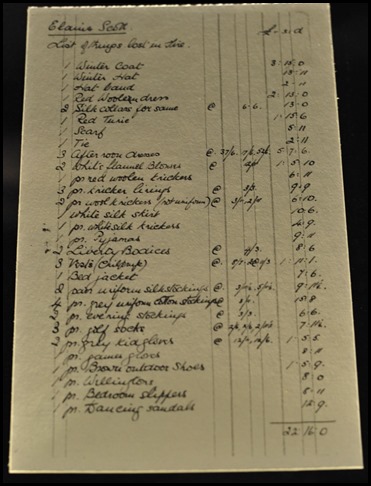 Elaine Scott.
List of things lost in fire. £ - s - d
1 Winter Coat 3 : 15 : 0
1 Winter Hat 15 : 11
1 Hat band 2 : 11
1 Red Woolen dress 2 : 15 : 0
2 Silk collars for same @ 6-6. 13 : 0
1 Red Tunic 1 : 15 : 6
1 Scarf 5 : 11
1 Tie 2 : 11
3 Afternoon dresses @ 5 : 7 : 6
2 White Flannel Blouses @ 1 : 5 : 10
1 pr red woolen knickers 6 : 11
3 pr. knicker linings @ 3/3. 9 : 9
2 pr wool knickers (not uniform) @ 6 : 10.
1 White silk shirt 10 : 6.
1 pr. white silk knickers
1 pr. Pyjamas 9 : 11
2 Liberty Bodices @ 4/3. 8 : 6
3 Vests @ 1 : 11 : 1.
1 Bed jacket 7 : 6.
2 pairs uniform silk stockings @
4 pr. grey uniform cotton stockings @ 15 : 8
2 pr. evening stockings @ 3/3. 6 : 6.
3 pr. golf socks @
2 pr. grey kid gloves @ 1 : 5 : 5
1 pr. games gloves 8 : 11
1 pr. Brown outdoor shoes 1 : 5 : 9.
1 pr. Wellingtons 8 : 0
1 pr. Bedroom slippers 8 : 11
1 pr. Dancing sandals 12 : 9.
22 : 16 : 0